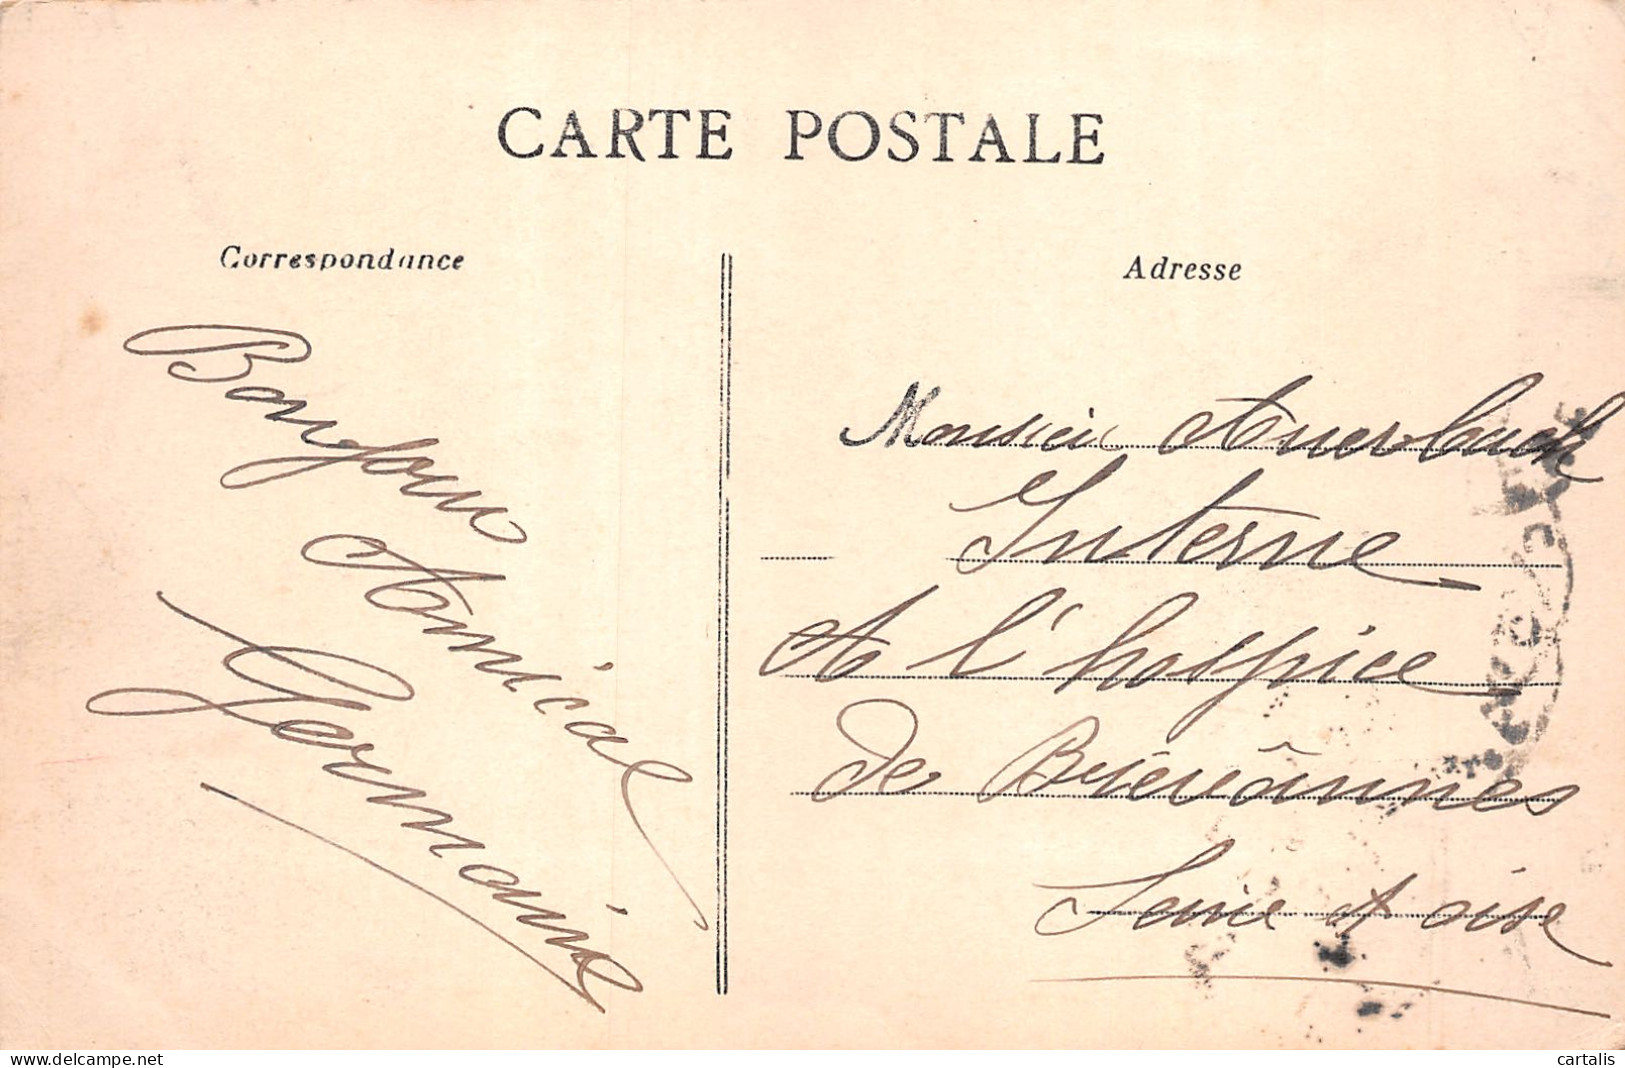 CARTE POSTALE
Correspondance
Adresse
Bonjour
Amical
Germaine
Monsieur Auerback
Interne
A l'hospice
De Brievânnes
Seine et oise
delcampe.net
cartalis